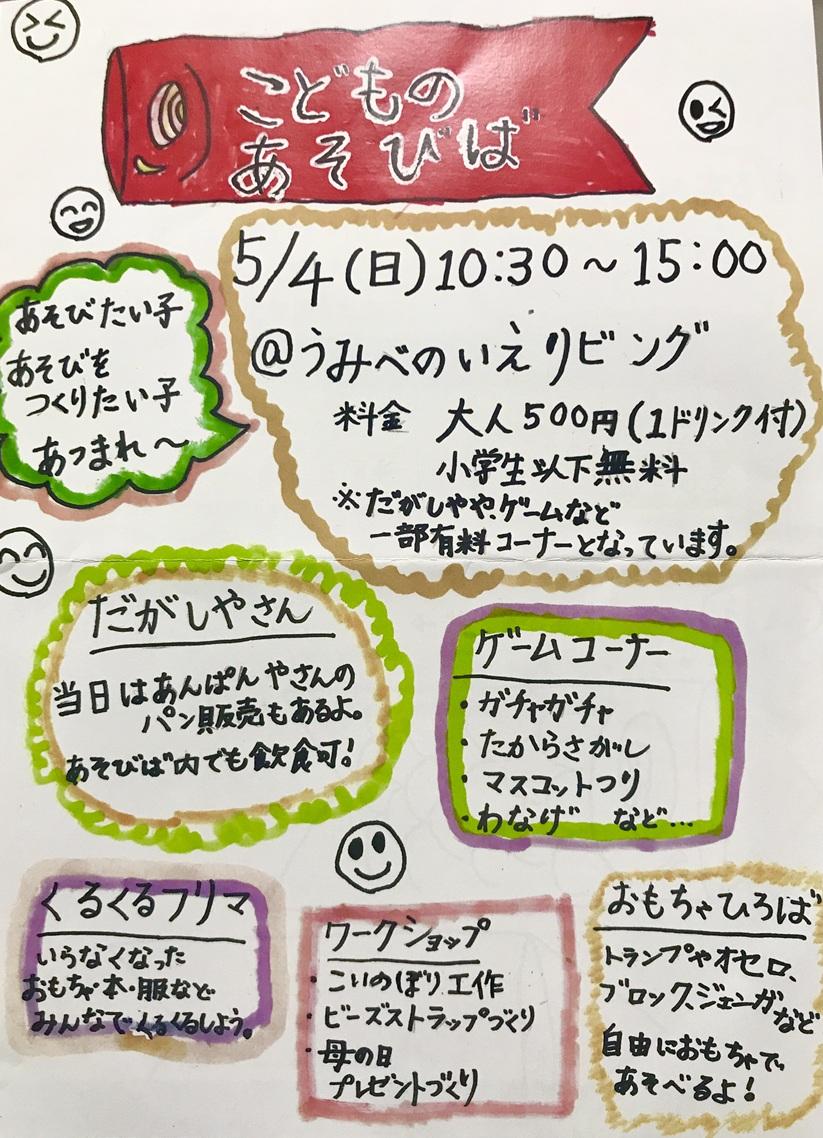 こどもの
あそびば
5/4(日)10:30～15:00
@うみべのいえリビング
料金 大人500円(1ドリンク付)
小学生以下無料
※だがしやや、ゲームなど
一部有料コーナーとなっています。
あそびたい子
あそびを
つくりたい子
あつまれ〜
だがしやさん
当日はあんぱんやさんの
パン販売もあるよ。
あそびば内でも飲食可!
ゲームコーナー
・ガチャガチャ
・たからさがし
・マスコットつり
・わなげ など…
くるくるフリマ
いらなくなった
おもちゃ・本・服など
みんなでくるくるしよう。
ワークショップ
・こいのぼり工作
・ビーズストラップづくり
・母の日
プレゼントづくり
おもちゃひろば
トランプやオセロ、
ブロック、ジェンガなど
自由におもちゃで
あそべるよ!